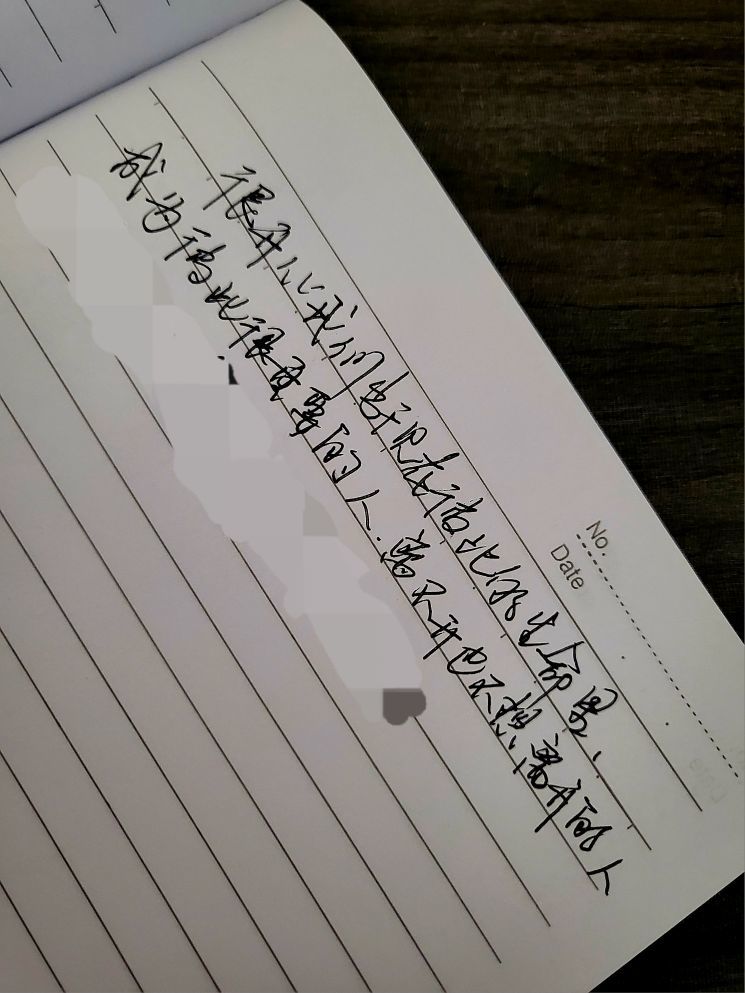 No.
Date
很开心我们出现在彼此的生命里,
成为彼此很重要的人.离不开也不想离开的人